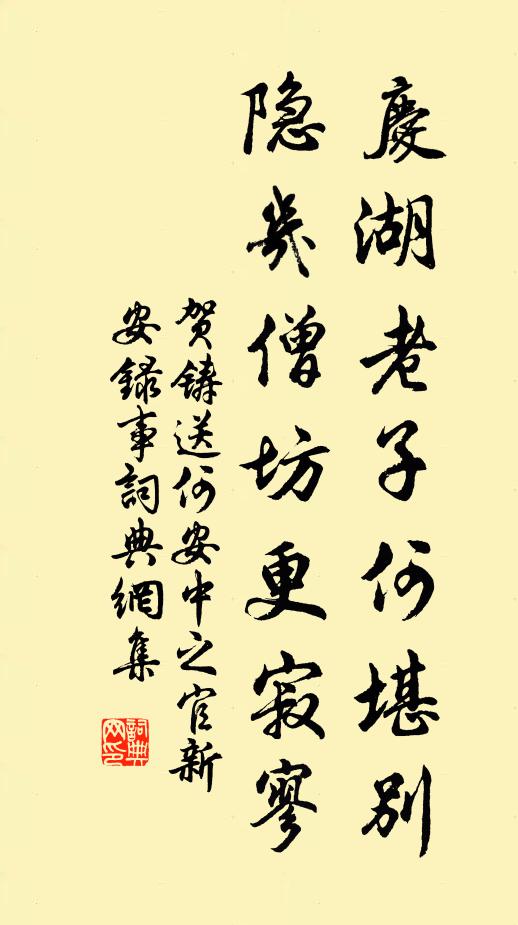 慶湖老子何堪別
隐幾僧坊更寂寥
賀鑄送何安中之官新
安録事詞典網集
詞典
网印